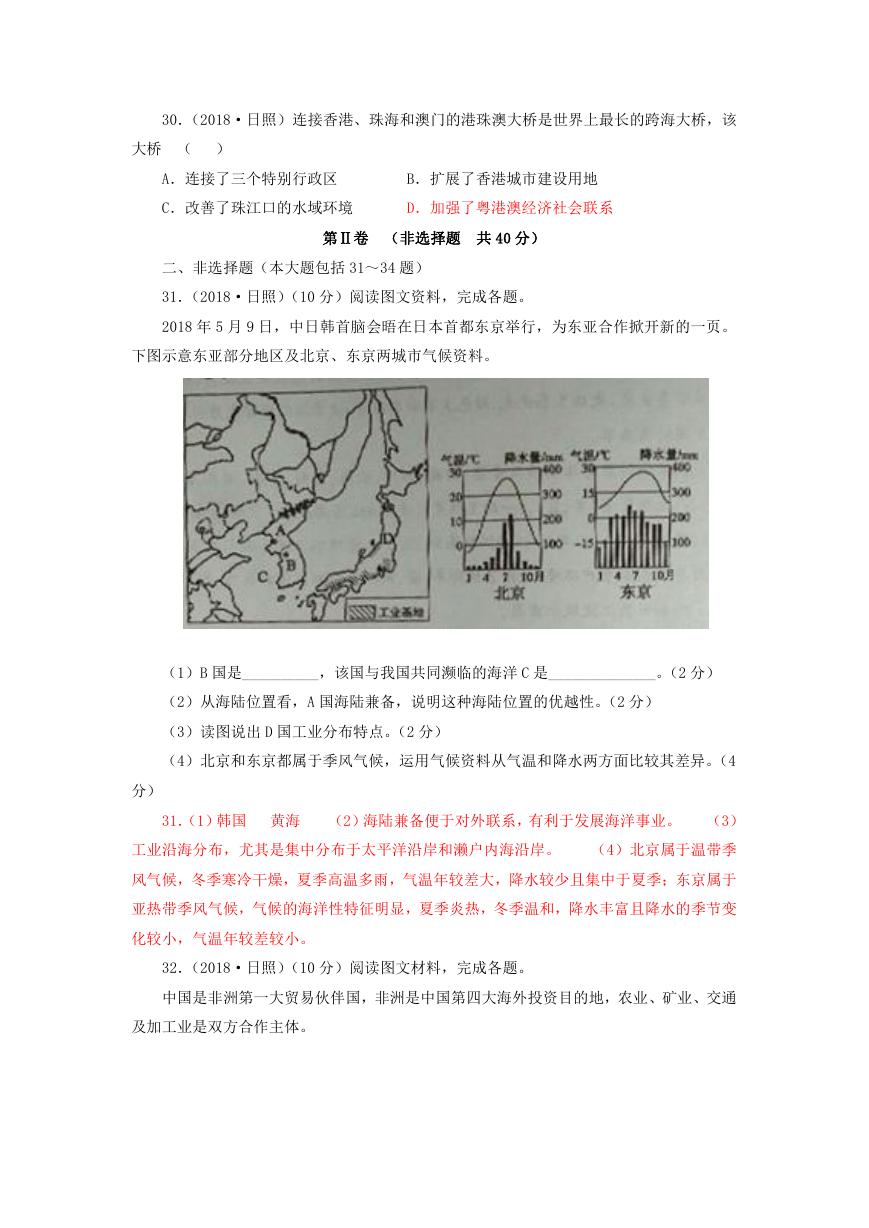 30.（2018·日照）连接香港、珠海和澳门的港珠澳大桥是世界上最长的跨海大桥，该
大桥 （  ）
A．连接了三个特别行政区 B．扩展了香港城市建设用地
C．改善了珠江口的水域环境 D．加强了粤港澳经济社会联系
第Ⅱ卷 （非选择题 共 40 分）
二、非选择题（本大题包括 31～34 题）
31.（2018·日照）（10 分）阅读图文资料，完成各题。
2018 年 5 月 9 日，中日韩首脑会晤在日本首都东京举行，为东亚合作掀开新的一页。
下图示意东亚部分地区及北京、东京两城市气候资料。
气温/℃ 降水量/mm 气温/℃ 降水量/mm
30 400 30 400
20 300 15 300
10 200 0 200
0 100 -15 100
1 4 7 10月 1 4 7 10月
北京 东京
A
B
C
D
工业基地
（1）B 国是__________，该国与我国共同濒临的海洋 C 是______________。（2 分）
（2）从海陆位置看，A 国海陆兼备，说明这种海陆位置的优越性。（2 分）
（3）读图说出 D 国工业分布特点。（2 分）
（4）北京和东京都属于季风气候，运用气候资料从气温和降水两方面比较其差异。（4
分）
31.（1）韩国 黄海 （2）海陆兼备便于对外联系，有利于发展海洋事业。 （3）
工业沿海分布，尤其是集中分布于太平洋沿岸和濑户内海沿岸。 （4）北京属于温带季
风气候，冬季寒冷干燥，夏季高温多雨，气温年较差大，降水较少且集中于夏季；东京属于
亚热带季风气候，气候的海洋性特征明显，夏季炎热，冬季温和，降水丰富且降水的季节变
化较小，气温年较差较小。
32.（2018·日照）（10 分）阅读图文材料，完成各题。
中国是非洲第一大贸易伙伴国，非洲是中国第四大海外投资目的地，农业、矿业、交通
及加工业是双方合作主体。